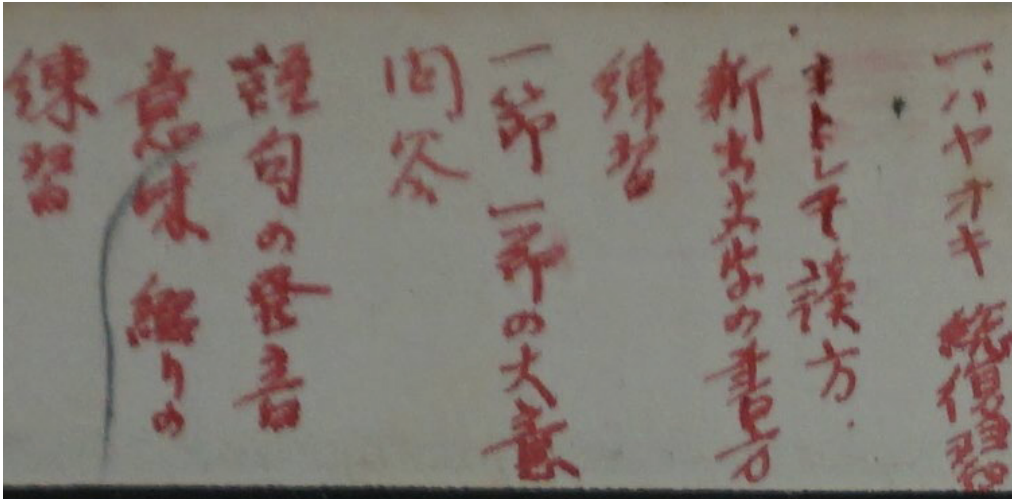 一、ハヤオキ 総復習
主トして讀方
新出文字の書方
練習
一節一節の大意
問答
語句の発音
意味 綴りの
練習